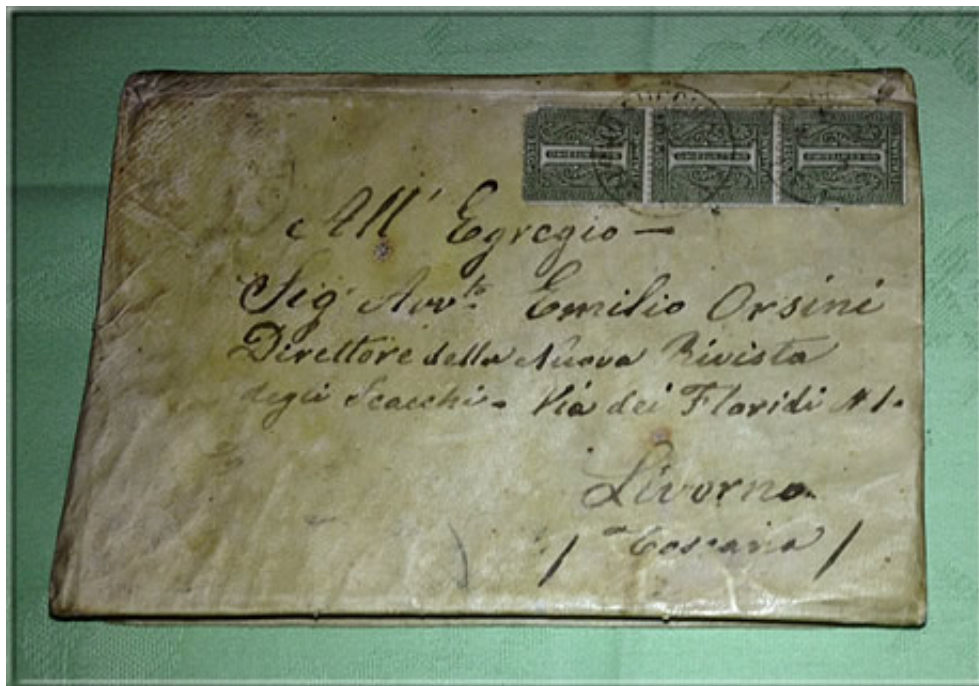 All' Egregio —
Sig Avv.to Emilio Orsini
Direttore della Nuova Rivista
degli Scacchi - Via dei Floridi N 1.
Livorno
/ Toscana /